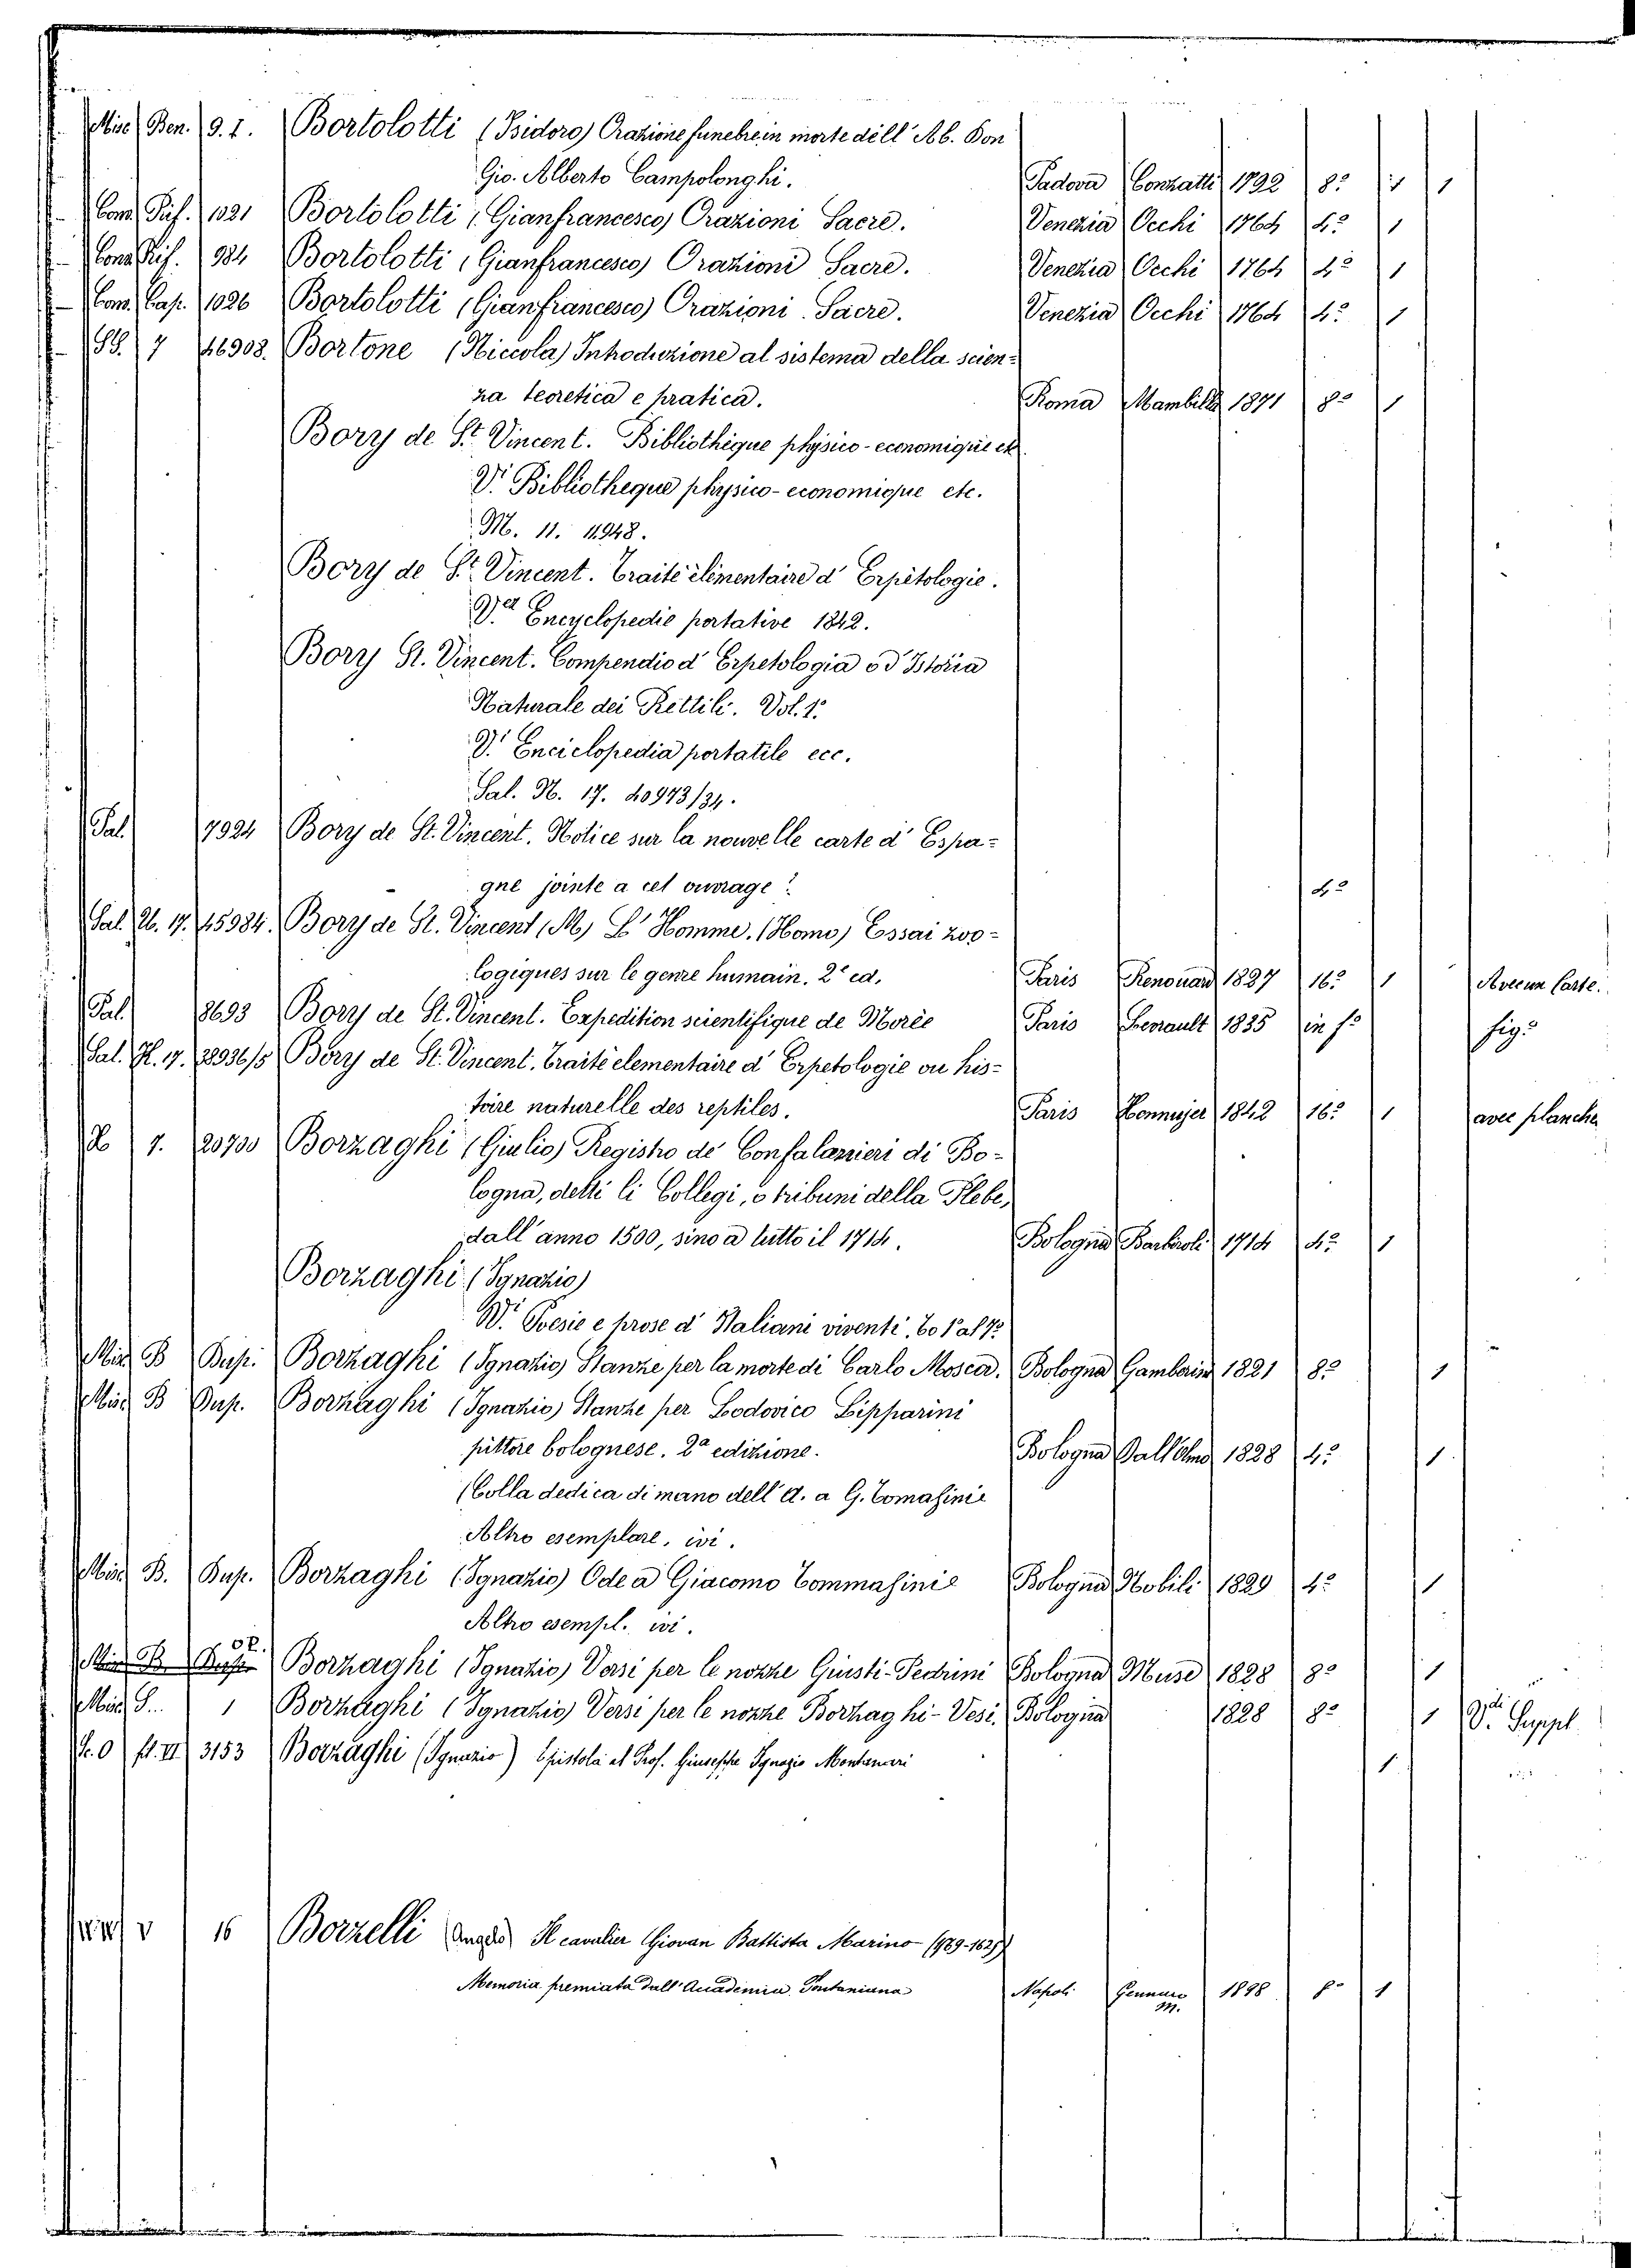 Misc. Ben. 9. 1. Bortolotti (Isidoro) Orazione funebre in morte dell' Ab. Don
Gio. Alberto Campolonghi. Padova Conzatti 1792 8º 1 1
Conv. Rif. 1021 Bortolotti (Gianfrancesco) Orazioni Sacre. Venezia Occhi 1764 4º 1
Conv. Rif. 984 Bortolotti (Gianfrancesco) Orazioni Sacre. Venezia Occhi 1764 4º 1
Conv. Cap. 1026 Bortolotti (Gianfrancesco) Orazioni Sacre. Venezia Occhi 1764 4º 1
SS. 7 46908. Bortone (Niccola) Introduzione al sistema della scien=
za teoretica e pratica. Roma 1871 8º 1
Bory de St. Vincent. Bibliothèque physico-economique et
V. Bibliotheque physico-economique etc.
M. 11. 11948.
Bory de St. Vincent. Traité élémentaire d' Erpétologie.
V. Encyclopedie portative 1842.
Bory St. Vincent. Compendio d' Erpetologia o d' Istoria
Naturale dei Rettili. Vol. 1º
V. Enciclopedia portatile ecc.
Sal. N. 17. 40973/34.
Sal. 7924 Bory de St. Vincent. Notice sur la nouvelle carte d' Espa=
gne jointe a cet ouvrage. 4º
Sal. N. 17. 45984. Bory de St. Vincent (M) L' Homme. (Homo) Essai zoo-
logiques sur le genre humain. 2e ed. Paris Renouard 1827 16º 1 Avec un Carte.
Sal. 8693 Bory de St. Vincent. Expedition scientifique de Morée Paris Levrault 1835 in fº fig.
Sal. N. 17. 28936/5 Bory de St. Vincent. Traité elementaire d' Erpetologie ou his=
toire naturelle des reptiles. Paris 1842 16º 1 avec planche
7. 20700 Borzaghi (Giulio) Registro de' Confalonieri di Bo-
logna, detti li Collegi, o tribuni della Plebe,
dall' anno 1500, sino a tutto il 1714. Bologna Barbiroli 1714 4º 1
Borzaghi (Ignazio)
V. Poesie e prose d' Italiani viventi. To 1º al 7º
Misc. B Busp. Borzaghi (Ignazio) Stanze per la morte di Carlo Mosca. Bologna Gamberini 1821 8º 1
Misc. B Busp. Borzaghi (Ignazio) Stanze per Lodovico Lipparini
pittore bolognese. 2a edizione. Bologna Dall'Olmo 1828 4º 1
(Colla dedica di mano dell' A. a G. Tomasini)
Altro esemplare, ivi.
Misc. B. Busp. Borzaghi (Ignazio) Ode a Giacomo Tommasini Bologna Nobili 1829 4º 1
Altro esempl. ivi.
Borzaghi (Ignazio) Versi per le nozze Giusti-Pedrini Bologna Muse 1828 8º 1
Misc. S. 1 Borzaghi (Ignazio) Versi per le nozze Borzaghi-Vesi. Bologna 1828 8º 1 Suppl.
3153 Borzaghi (Ignazio) Epistola al Prof. Giuseppe Ignazio Montanari 1
V 16 Borzelli (Angelo) Il cavalier Giovan Battista Marino (1569-1625)
Memoria premiata dall' Accademia Pontaniana Napoli Gennaro M. 1898 8º 1